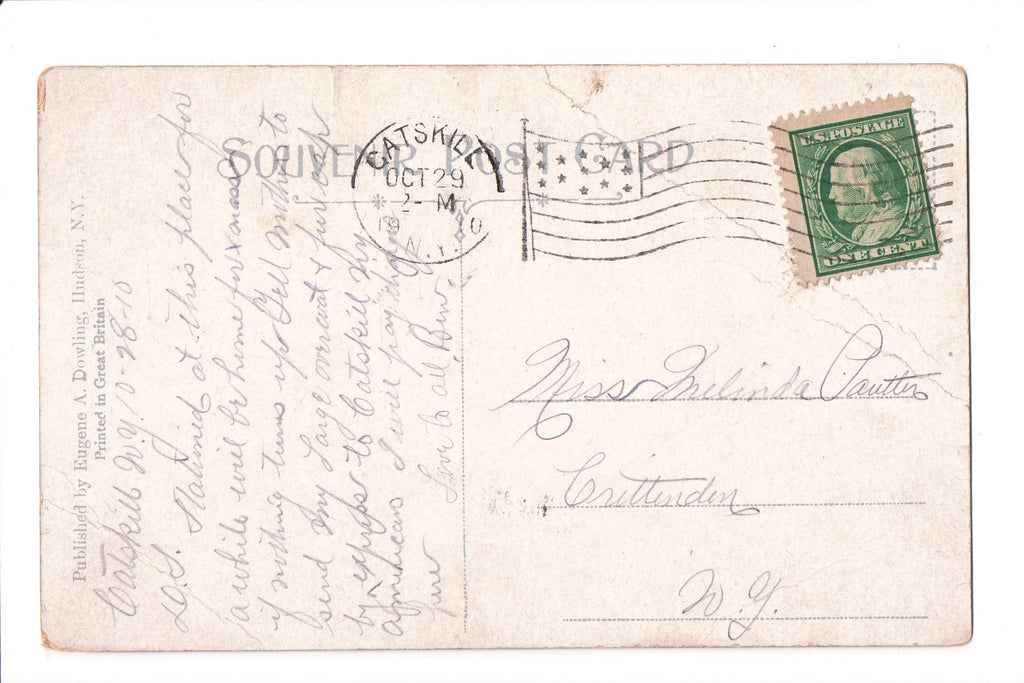 SOUVENIR POST CARD
CATSKILL
OCT 29
2- M
1910
N.Y.
U.S. POSTAGE
ONE CENT
Published by Eugene A. Dowling, Hudson, N.Y.
Printed in Great Britain
Catskill N.Y. 10-28-10
D.S. Stationed at this place for
a while will be home for xmas
if nothing turns up Tell Mother to
send my large overcoat & fur cap
by express to Catskill N.Y.
American I will pay charges
here
Love to all Bro.
Miss Melinda Pautler
Crittenden
N.Y.